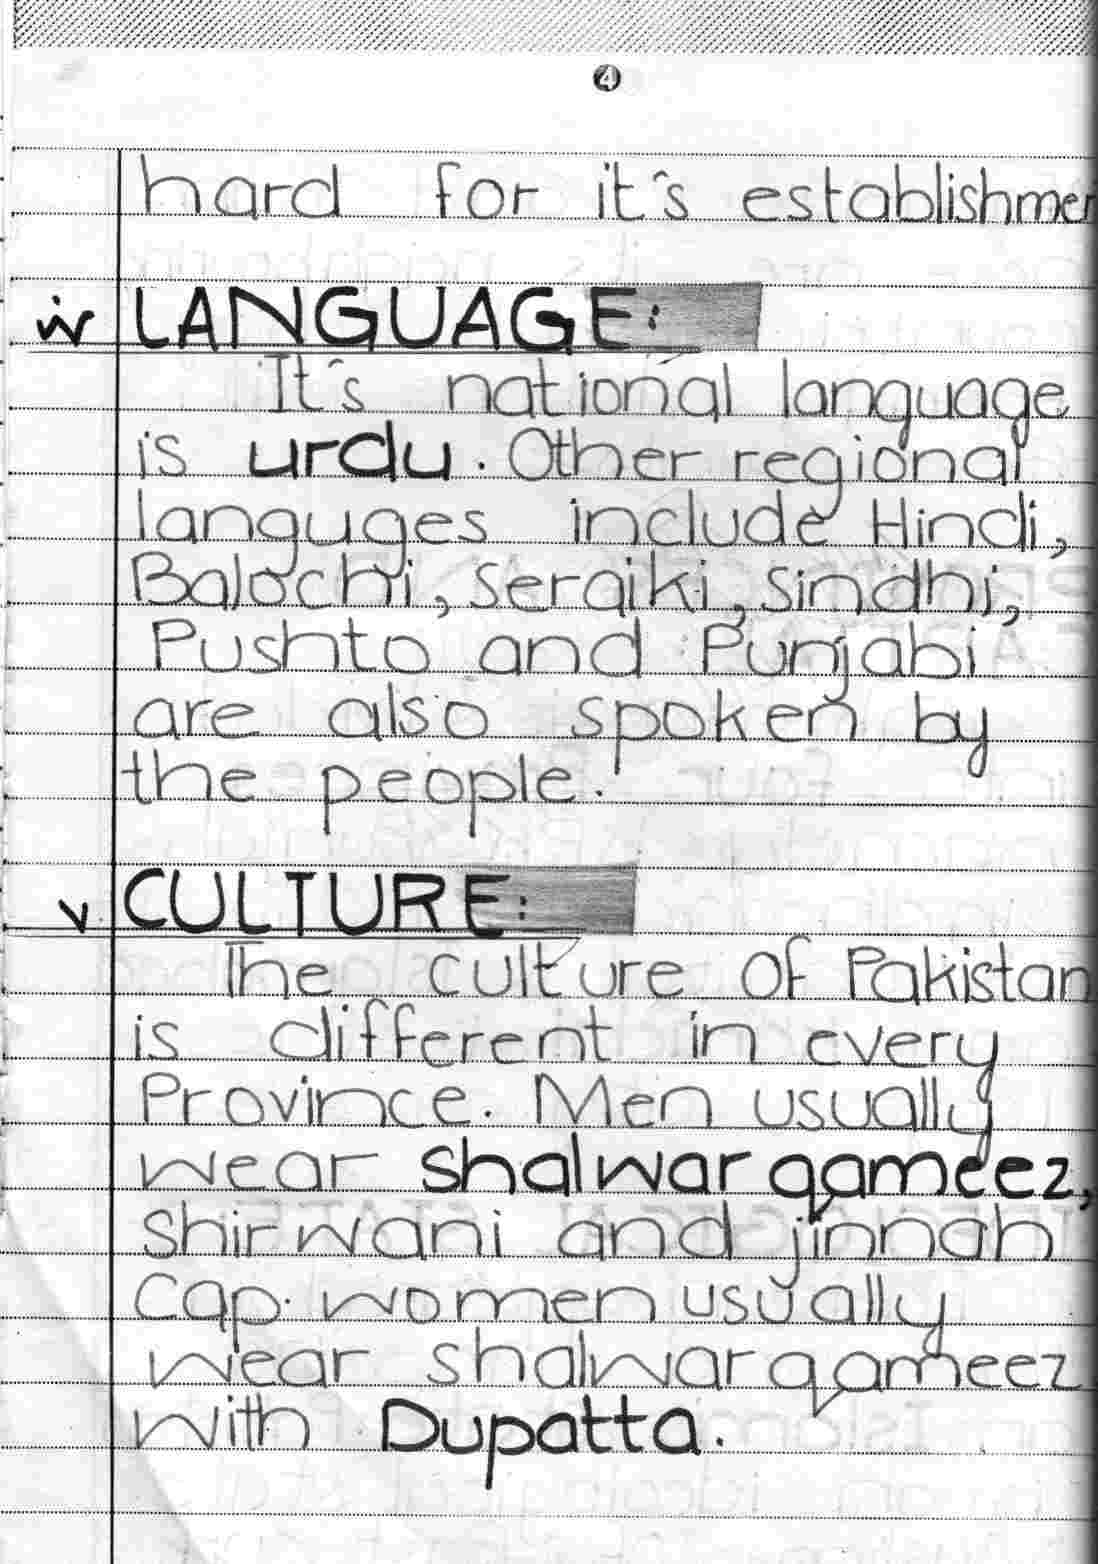 4
hard for it's establishmen
iv LANGUAGE:
It's national language
is urdu. Other regional
languges include Hindi,
Balochi, seraiki, sindhi,
Pushto and Punjabi
are also spoken by
the people.
v CULTURE:
The culture of Pakistan
is different in every
Province. Men usually
wear shalwar qameez,
shirwani and jinnah
Cap. women usually
wear shalwar qameez
with Dupatta.